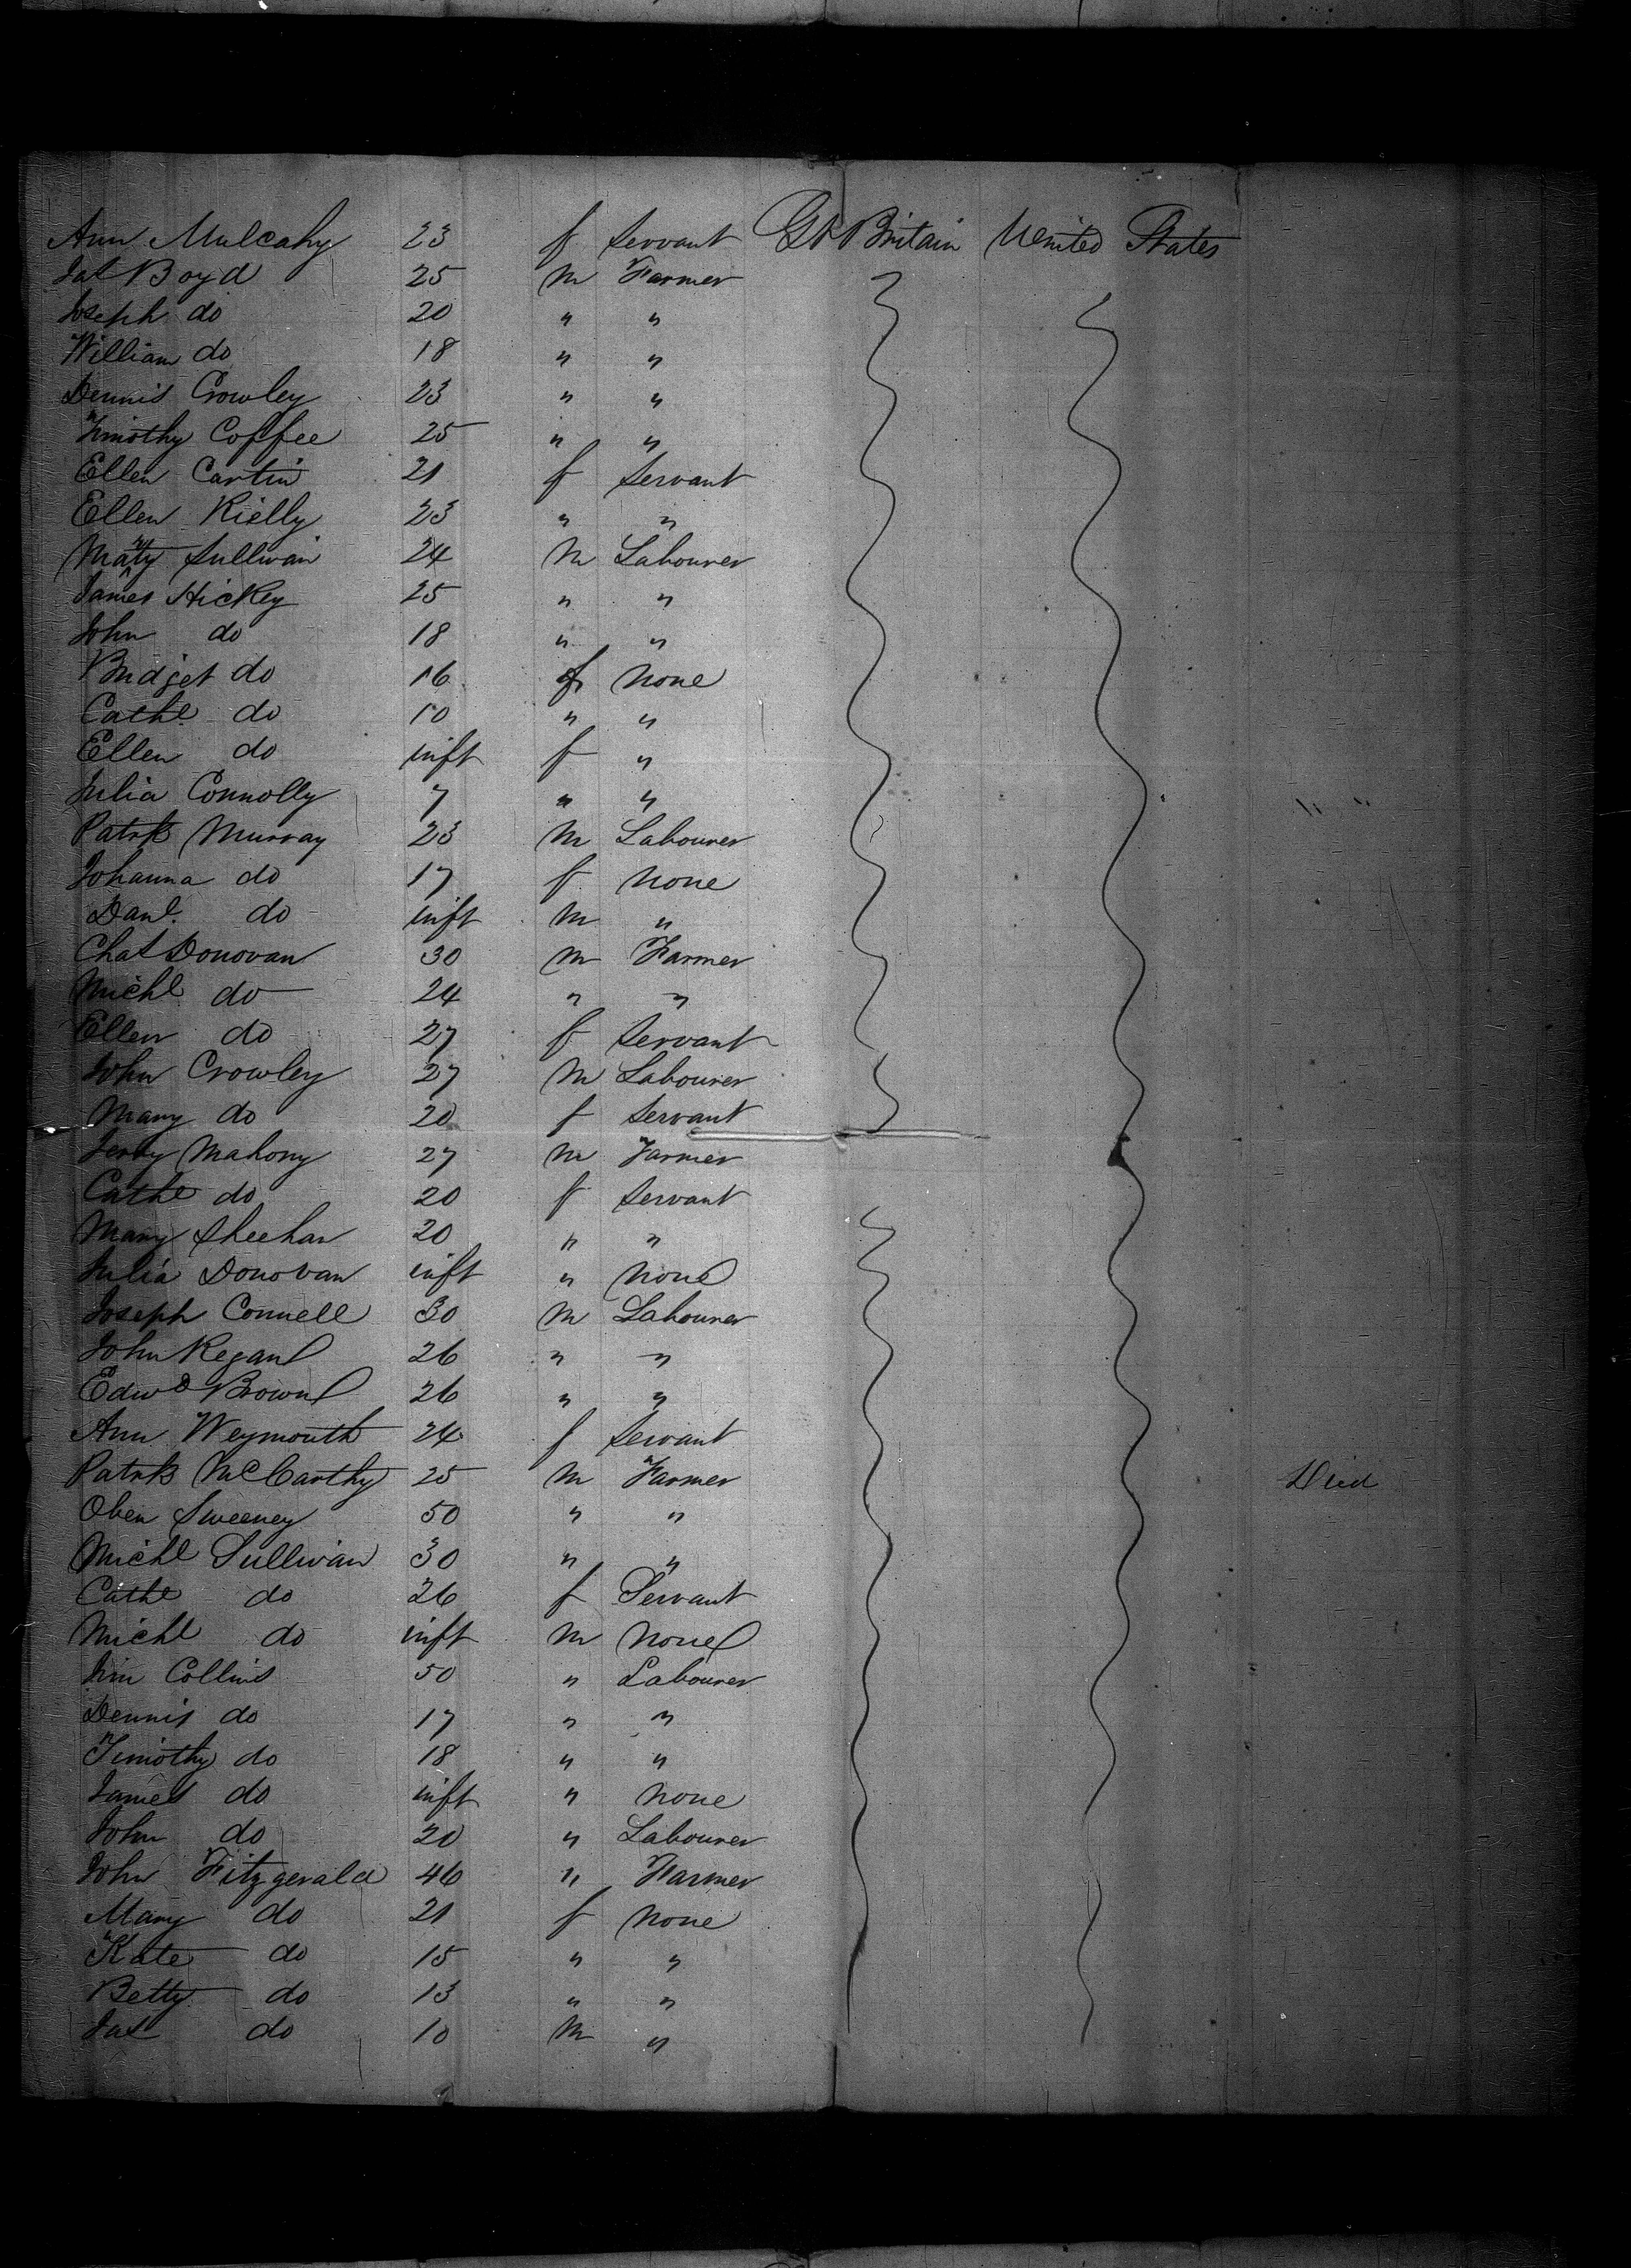 Ann Mulcahy 23 f Servant Gt Britain United States
Jas Boyd 25 m Farmer
Joseph do 20 " "
William do 18 " "
Dennis Crowley 23 " "
Timothy Coffee 25 " "
Ellen Cartin 21 f Servant
Ellen Rielly 23 " "
Maty Sullivan 24 m Labourer
James Hickey 25 " "
John do 18 " "
Bridget do 16 f none
Cathe do 10 " "
Ellen do inft f "
Julia Connolly 7 " "
Patrk Murray 23 m Labourer
Johanna do 17 f none
Danl. do inft m "
Chas Donovan 30 m Farmer
Michl do 24 " "
Ellen do 27 f Servant
John Crowley 27 m Labourer
Mary do 20 f Servant
Jerry Mahony 27 m Farmer
Cathe do 20 f Servant
Mary Sheehan 20 " "
Julia Donovan inft " none
Joseph Connell 30 m Labourer
John Regan 26 " "
Edwd Brown 26 " "
Ann Weymouth 24 f Servant
Patrk McCarthy 25 m Farmer Died
Owen Sweeney 50 " "
Michl Sullivan 30 " "
Cathe do 26 f Servant
Michl do inft m none
Jim Collins 50 " Labourer
Dennis do 17 " "
Timothy do 18 " "
James do inft " none
John do 20 " Labourer
John Fitzgerald 46 " Farmer
Mary do 21 f none
Kate do 15 " "
Betty do 13 " "
Jas do 10 m "